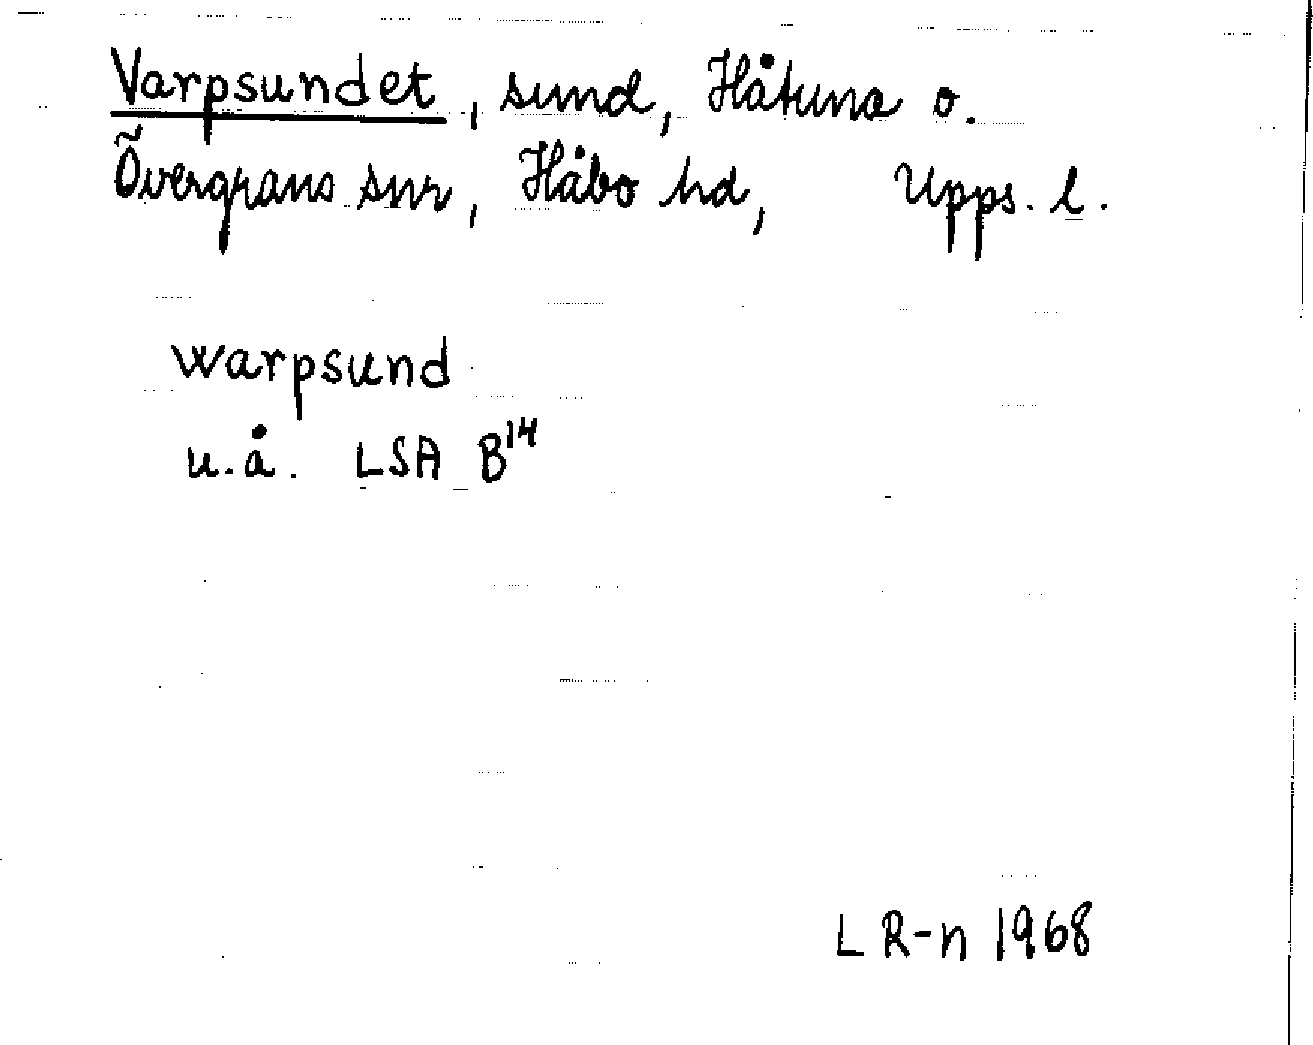 Varpsundet, sund, Håtuna o.
Övergrans snr, Håbo hd, Upps. l.
warpsund
u.å. LSA B14
L R-n 1968